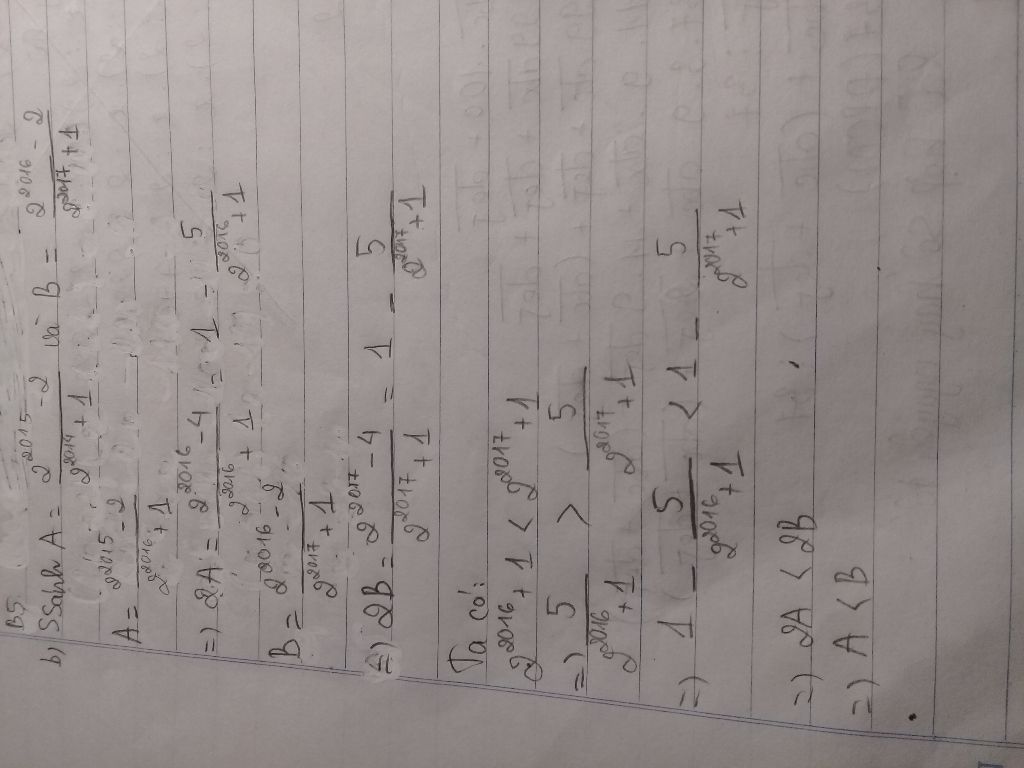 B5
b) SSánh A = \frac{2^{2015} - 2}{2^{2014} + 1} và B = \frac{2^{2016} - 2}{2^{2017} + 1}
A = \frac{2^{2015} - 2}{2^{2016} + 1}
=) 2A = \frac{2^{2016} - 4}{2^{2016} + 1} = 1 - \frac{5}{2^{2016} + 1}
B = \frac{2^{2016} - 2}{2^{2017} + 1}
=) 2B = \frac{2^{2017} - 4}{2^{2017} + 1} = 1 - \frac{5}{2^{2017} + 1}
Ta có:
2^{2016} + 1 < 2^{2017} + 1
=) \frac{5}{2^{2016} + 1} > \frac{5}{2^{2017} + 1}
=) 1 - \frac{5}{2^{2016} + 1} < 1 - \frac{5}{2^{2017} + 1}
=) 2A < 2B
=) A < B